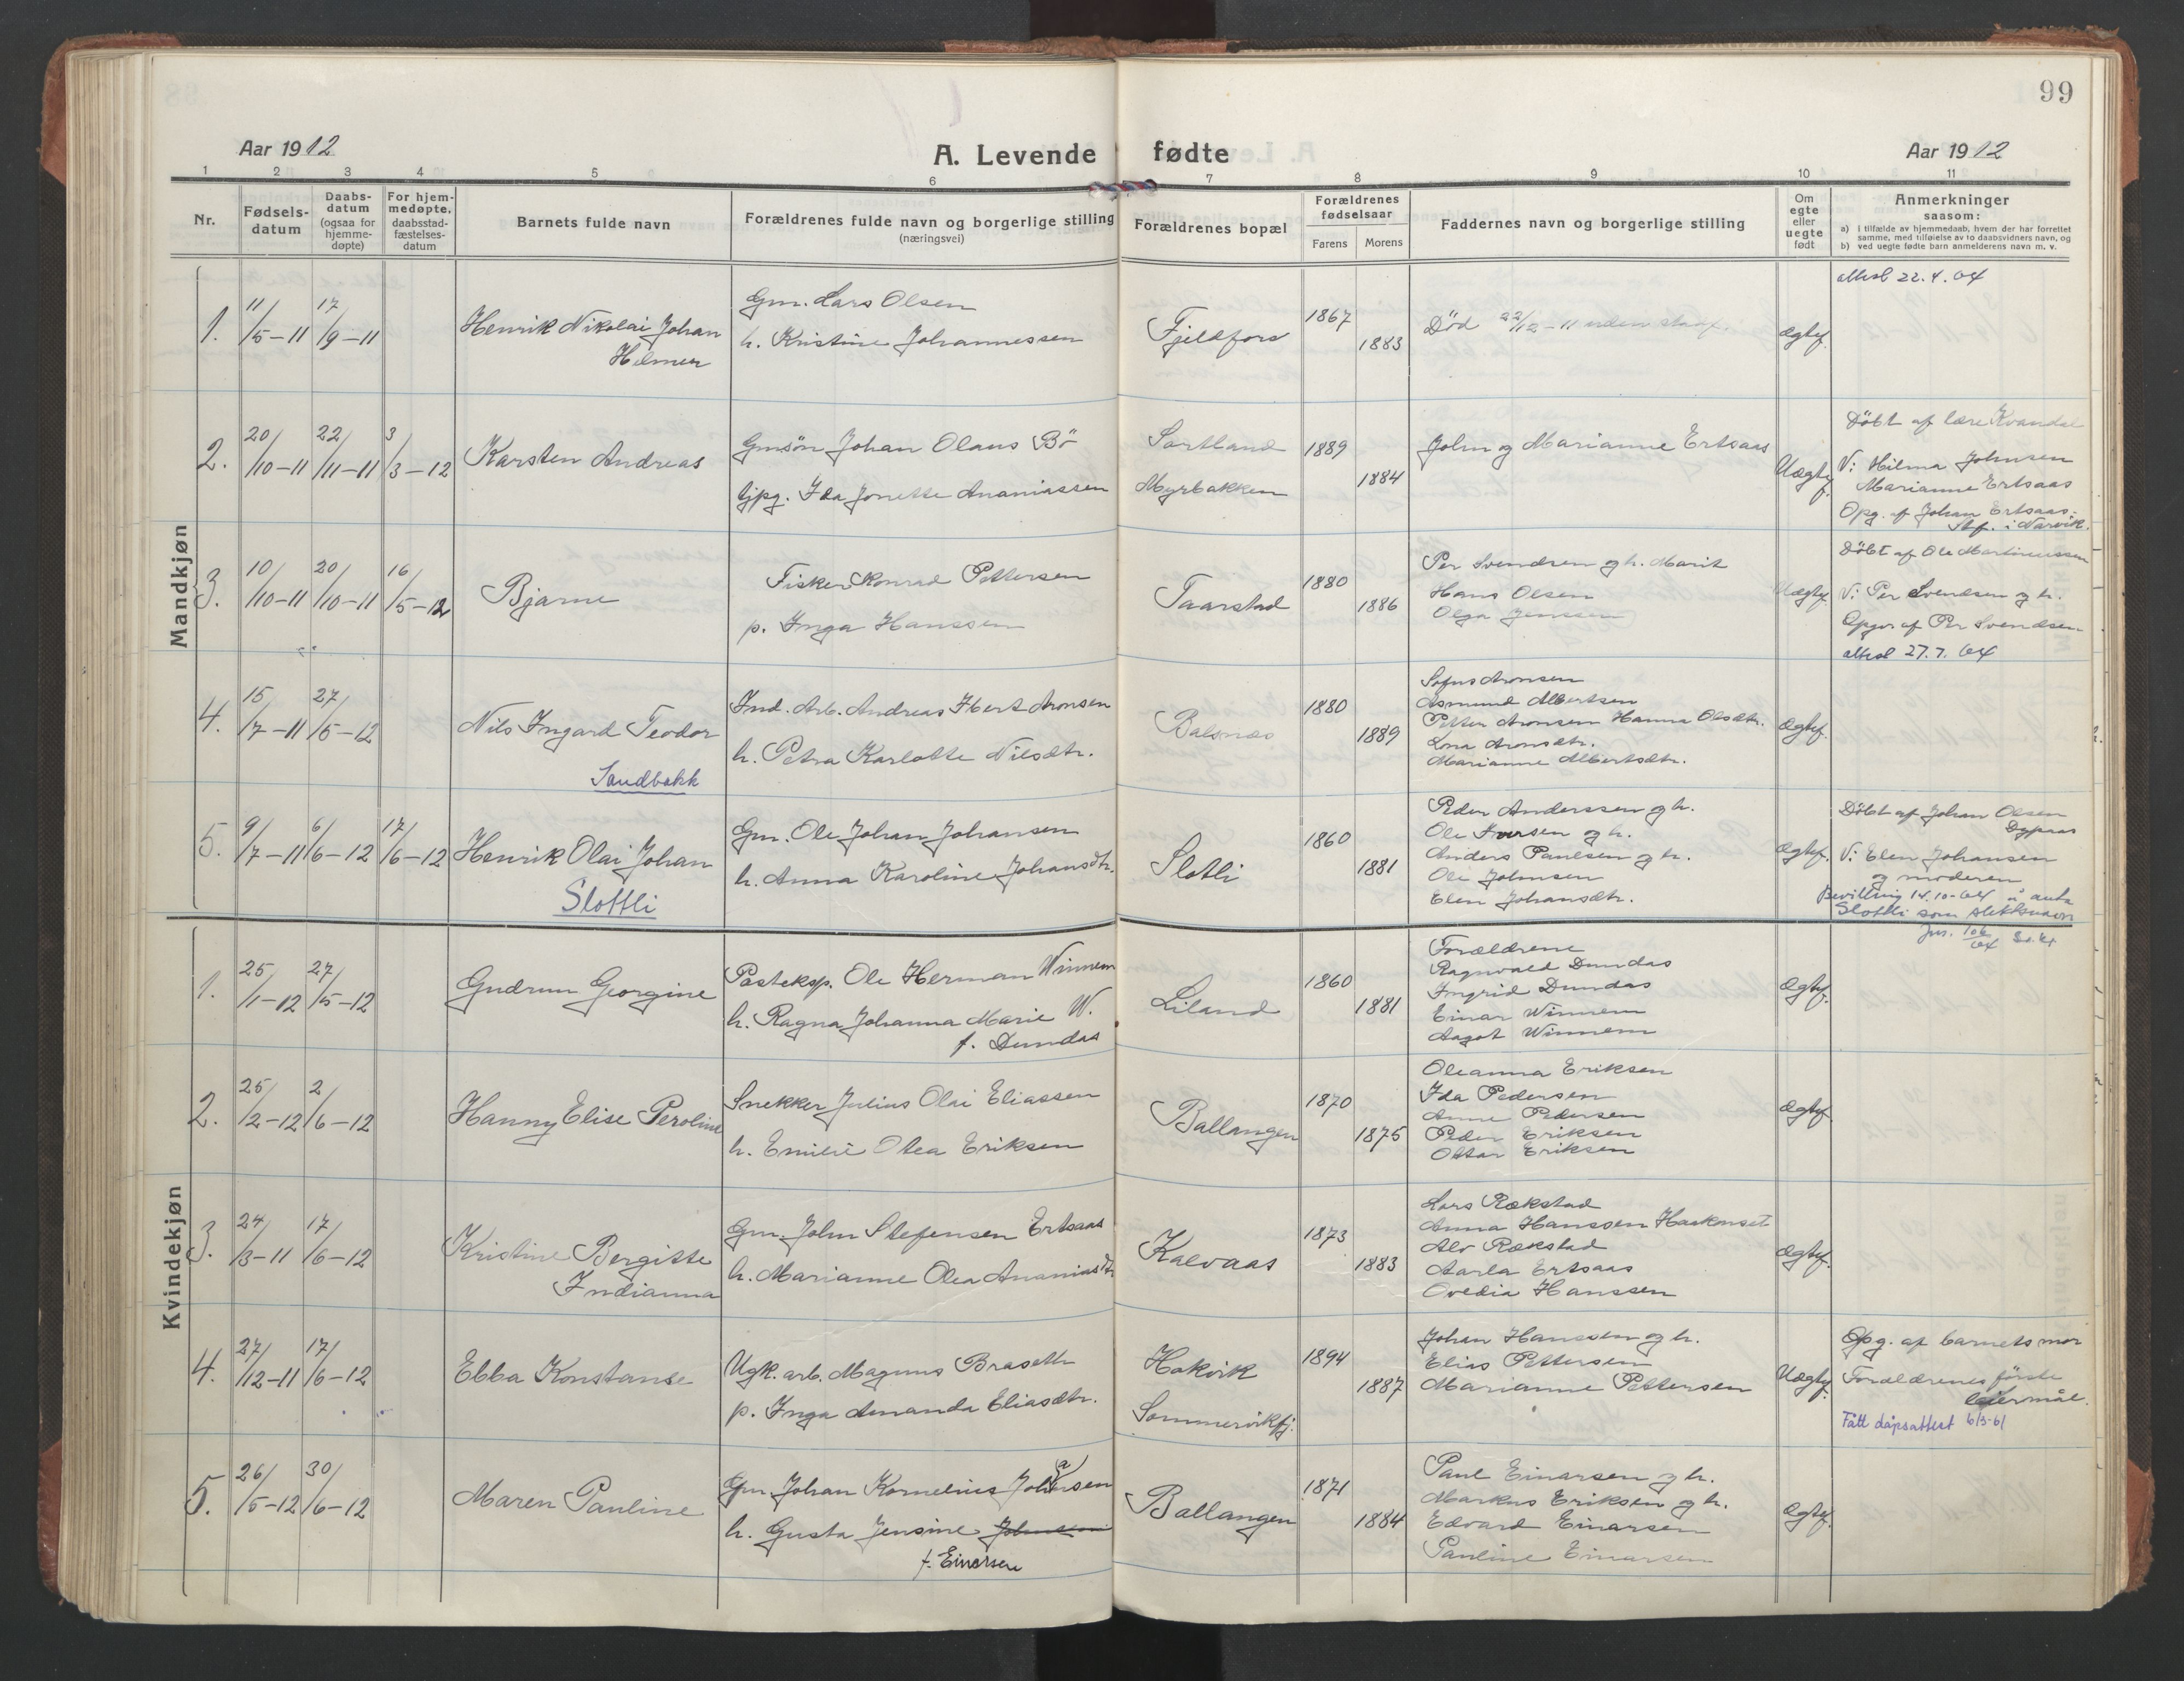 99
Aar 1912
A. Levende fødte
Aar 1912
1 2 3 4 5 6 7 8 9 10 11
Nr.
Fødsels-
datum
Daabs-
datum
(ogsaa for
hjemme-
døpte)
For hjem-
medøpte,
daabsstad-
fæstelses-
datum
Barnets fulde navn
Forældrenes fulde navn og borgerlige stilling
(næringsvei)
Forældrenes bopæl
Forældrenes
fødselsaar
Farens
Morens
Faddernes navn og borgerlige stilling
Om
egte
eller
uegte
født
Anmerkninger
saasom:
a) i tilfælde av hjemmedaab, hvem der har forrettet
samme, med tilføielse av to daabsvidners navn, og
b) ved uegte fødte barn anmelderens navn m. v.
Mandkjøn
1. 11/5-11 17/9-11
Henrik Nikolai Johan
Helmer
Gm. Lars Olsen
h. Kristine Johannessen
Fjeldfors
1867
1883
Død 22/12-11 uden
Ægtef.
attest 22.4.64
2. 20/10-11 22/11-11 3/3-12
Karsten Andreas
Gmsön Johan Olaus Bö
tjpg. Ida Jonette Ananiassen
Sortland
Myrbakken
1889
1884
John og Marianne Ertsaas
Uægtef.
Döbt af lære Kvandal
V: Hilma Johnsen
Marianne Ertsaas
Opg. af Johan Ertsaas.
Stf. i Narvik.
3. 10/10-11 20/10-11 16/5-12
Bjarne
Fisker Konrad Pettersen
p. Inga Hanssen
Taarstad
1880
1886
Per Svendsen og h. Marit
Hans Olsen
Olga Jenssen
Uægtef.
Döbt af Ole Martinussen
V: Per Svendsen og h.
Opgr af Per Svendsen
attest 27.7.64
4. 15/7-11 27/5-12
Nils Ingard Teodor
Sandbakk
Ind. Arb. Andreas Hert Aronsen
h. Petra Karlotte Nilsdtr.
Balsnes
1880
1889
Sofus Aronsen
Asmund Albertsen
Petter Aronsen Hanna Olsdtr.
Lona Aronsdtr.
Marianne Albertsdtr.
Ægtef.
5. 9/7-11 6/6-12 17/6-12
Henrik Olai Johan
Slottli
Gm. Ole Johan Johansen
h. Anna Karoline Johansdtr.
Slotli
1860
1881
Peder Anderssen og h.
Ole Iversen og h.
Anders Paulsen og h.
Ole Johnsen
Elen Johansdtr.
Ægtef.
Döbt af Johan Olsen
Dypaas
V: Elen Johansen
og moderen
Bevilling 14.10-64 å anta
Slottli som slektsnavn
Kvindekjøn
1. 25/1-12 27/5-12
Gudrun Georgine
Posteksp. Ole Herman Winnem
h. Ragna Johanna Marie W.
f. Dundas
Liland
1860
1881
Forældrene
Ragnvald Dundas
Ingrid Dundas
Einar Winnem
Aagot Winnem
Ægtef.
2. 25/2-12 2/6-12
Hanny Elise Peroline
Snekker Julius Olai Eliassen
h. Emilie Olea Eriksen
Ballangen
1870
1875
Oleanna Eriksen
Ida Pedersen
Anne Pedersen
Peder Eriksen
Ottar Eriksen
Ægtef.
3. 24/3-11 17/6-12
Kristine Bergitte
Indianna
Gm. John Stefensen Ertsaas
h. Marianne Olea Ananiasdtr
Kalvaas
1873
1883
Lars Rækstad
Anna Hanssen
Alv Rækstad
Aarla Ertsaas
Ovedia Hanssen
Ægtef.
4. 27/12-11 17/6-12
Ebba Konstanse
Ugk. arb. Magnus Braseth
p. Inga Amanda Eliasdtr.
Hakvik
Sommervikfj.
1894
1887
Johan Hanssen og h.
Elias Pettersen
Marianne Pettersen
Uægtef.
Opg. af barnets mor
Forældrenes förste
leiermål.
Fått dåpsattest 6/3-61
5. 26/5-12 30/6-12
Maren Pauline
Gm Johan Kornelius Johansen
h. Gusta Jensine Johnsen
f. Einarsen
Ballangen
1871
1884
Paul Einarsen og h.
Markus Eriksen og h.
Edvard Einarsen
Pauline Einarsen
Ægtef.